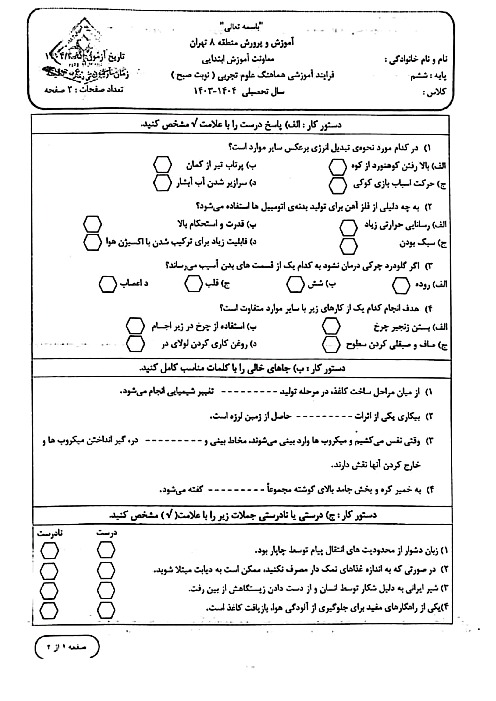 "باسمه تعالی"
آموزش و پرورش منطقه ۸ تهران
معاونت آموزش ابتدایی
فرایند آموزشی هماهنگ علوم تجربی ( نوبت صبح )
سال تحصیلی ۱۴۰۴-۱۴۰۳
نام و نام خانوادگی :
پایه : ششم
کلاس :
تاریخ آزمون
زمان
تعداد صفحات : ۲ صفحه
دستور کار : الف) پاسخ درست را با علامت √ مشخص کنید.
۱) در کدام مورد نحوه‌ی تبدیل انرژی برعکس سایر موارد است؟
الف) بالا رفتن کوهنورد از کوه ب) پرتاب تیر از کمان
ج) حرکت اسباب بازی کوکی د) سرازیر شدن آب آبشار
۲) به چه دلیلی از فلز آهن برای تولید بدنه‌ی اتومبیل ها استفاده می‌شود؟
الف) رسانایی حرارتی زیاد ب) قدرت و استحکام بالا
ج) سبک بودن د) قابلیت زیاد برای ترکیب شدن با اکسیژن هوا
۳) اگر گلودرد چرکی درمان نشود به کدام یک از قسمت های بدن آسیب می‌رساند؟
الف) روده ب) شش ج) قلب د) اعصاب
۴) هدف انجام کدام یک از کارهای زیر با سایر موارد متفاوت است؟
الف) بستن زنجیر چرخ ب) استفاده از چرخ در زیر اجسام
ج) صاف و صیقلی کردن سطوح د) روغن کاری کردن لولای در
دستور کار : ب) جاهای خالی را با کلمات مناسب کامل کنید.
۱) از میان مراحل ساخت کاغذ، در مرحله تولید --------- تغییر شیمیایی انجام می‌شود.
۲) بیکاری یکی از اثرات --------- حاصل از زمین لرزه است.
۳) وقتی نفس می‌کشیم و میکروب ها وارد بینی می‌شوند، مخاط بینی و --------- در، گیر انداختن میکروب ها و
خارج کردن آنها نقش دارند.
۴) به خمیر کره و بخش جامد بالای گوشته مجموعاً --------- گفته می‌شود.
دستور کار : ج) درستی یا نادرستی جملات زیر را با علامت( √ ) مشخص کنید.
درست نادرست
۱) زبان دشوار از محدودیت های انتقال پیام توسط چاپار بود.
۲) در صورتی که به اندازه غذاهای نمک دار مصرف نکنید، ممکن است به دیابت مبتلا شوید.
۳) شیر ایرانی به دلیل شکار توسط انسان و از دست دادن زیستگاهش از بین رفت.
۴) یکی از راهکارهای مفید برای جلوگیری از آلودگی هوا، بازیافت کاغذ است.
صفحه ۱ از ۲